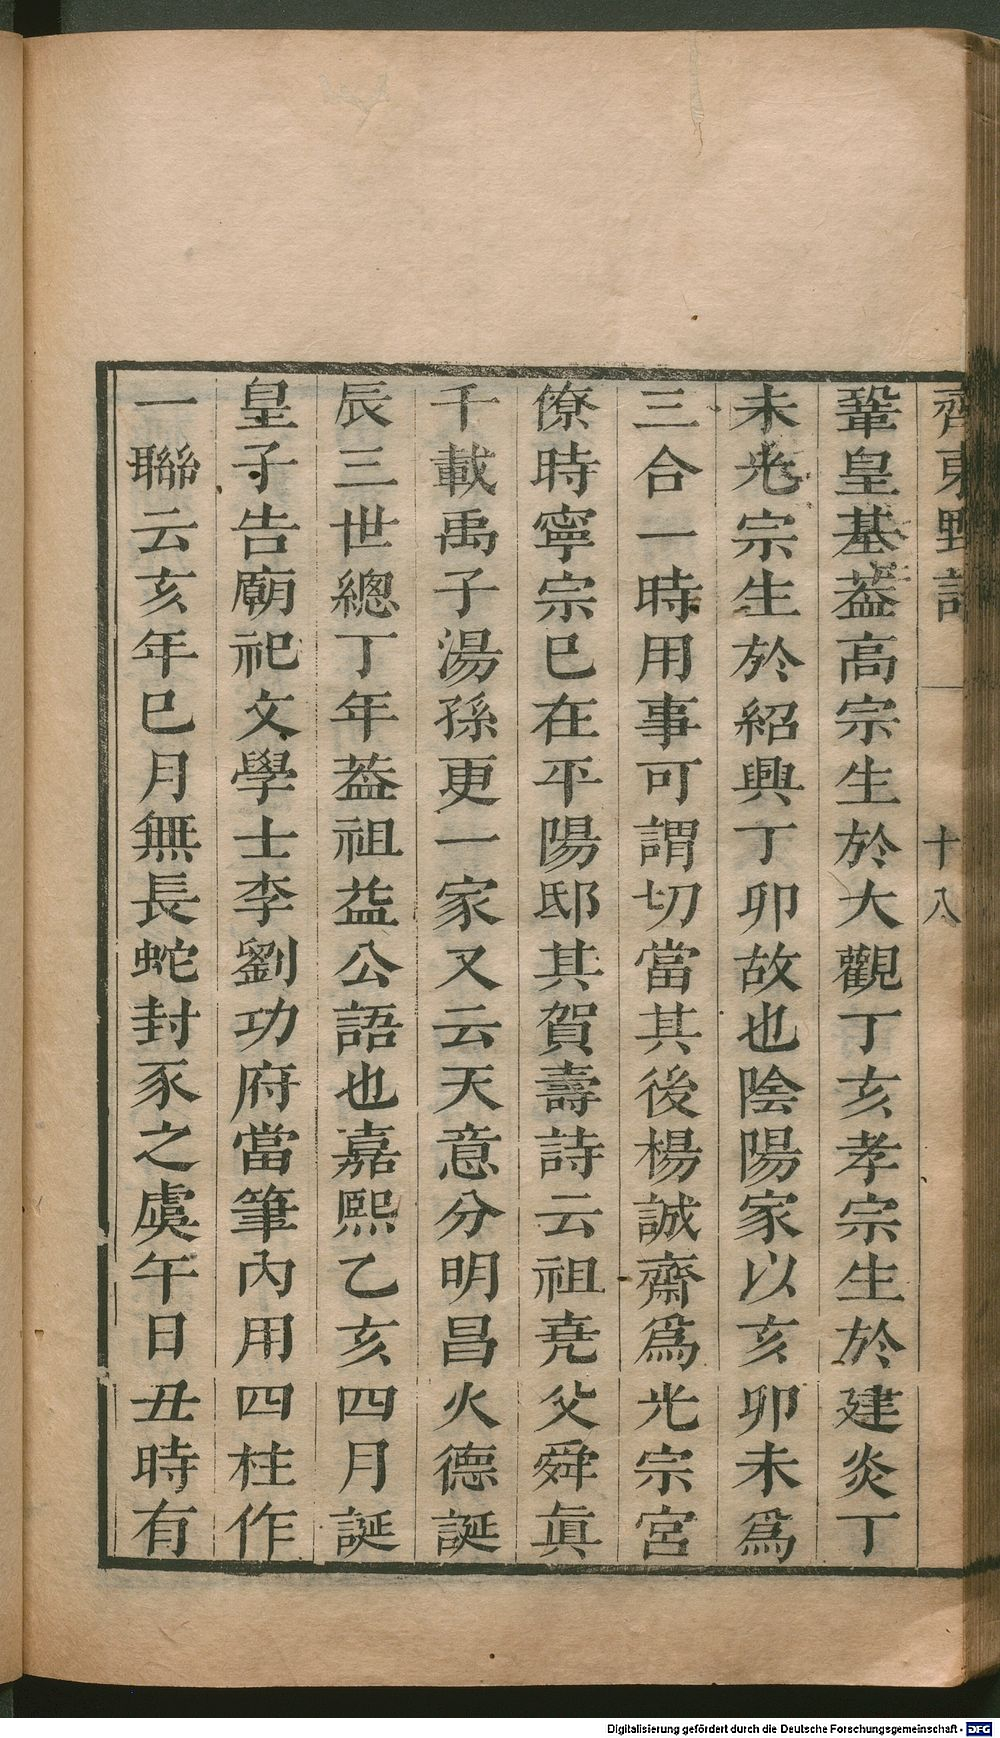 齊東野語
十八
鞏皇基葢高宗生於大觀丁亥孝宗生於建炎丁
未光宗生於紹興丁卯故也陰陽家以亥卯未爲
三合一時用事可謂切當其後楊誠齋爲光宗宮
僚時寧宗巳在平陽邸其賀壽詩云祖堯父舜眞
千載禹子湯孫更一家又云天意分明昌火德誕
辰三世總丁年葢祖益公語也嘉熙乙亥四月誕
皇子告廟祀文學士李劉功府當筆內用四柱作
一聯云亥年巳月無長蛇封豕之虞午日丑時有
Digitalisierung gefördert durch die Deutsche Forschungsgemeinschaft - DFG